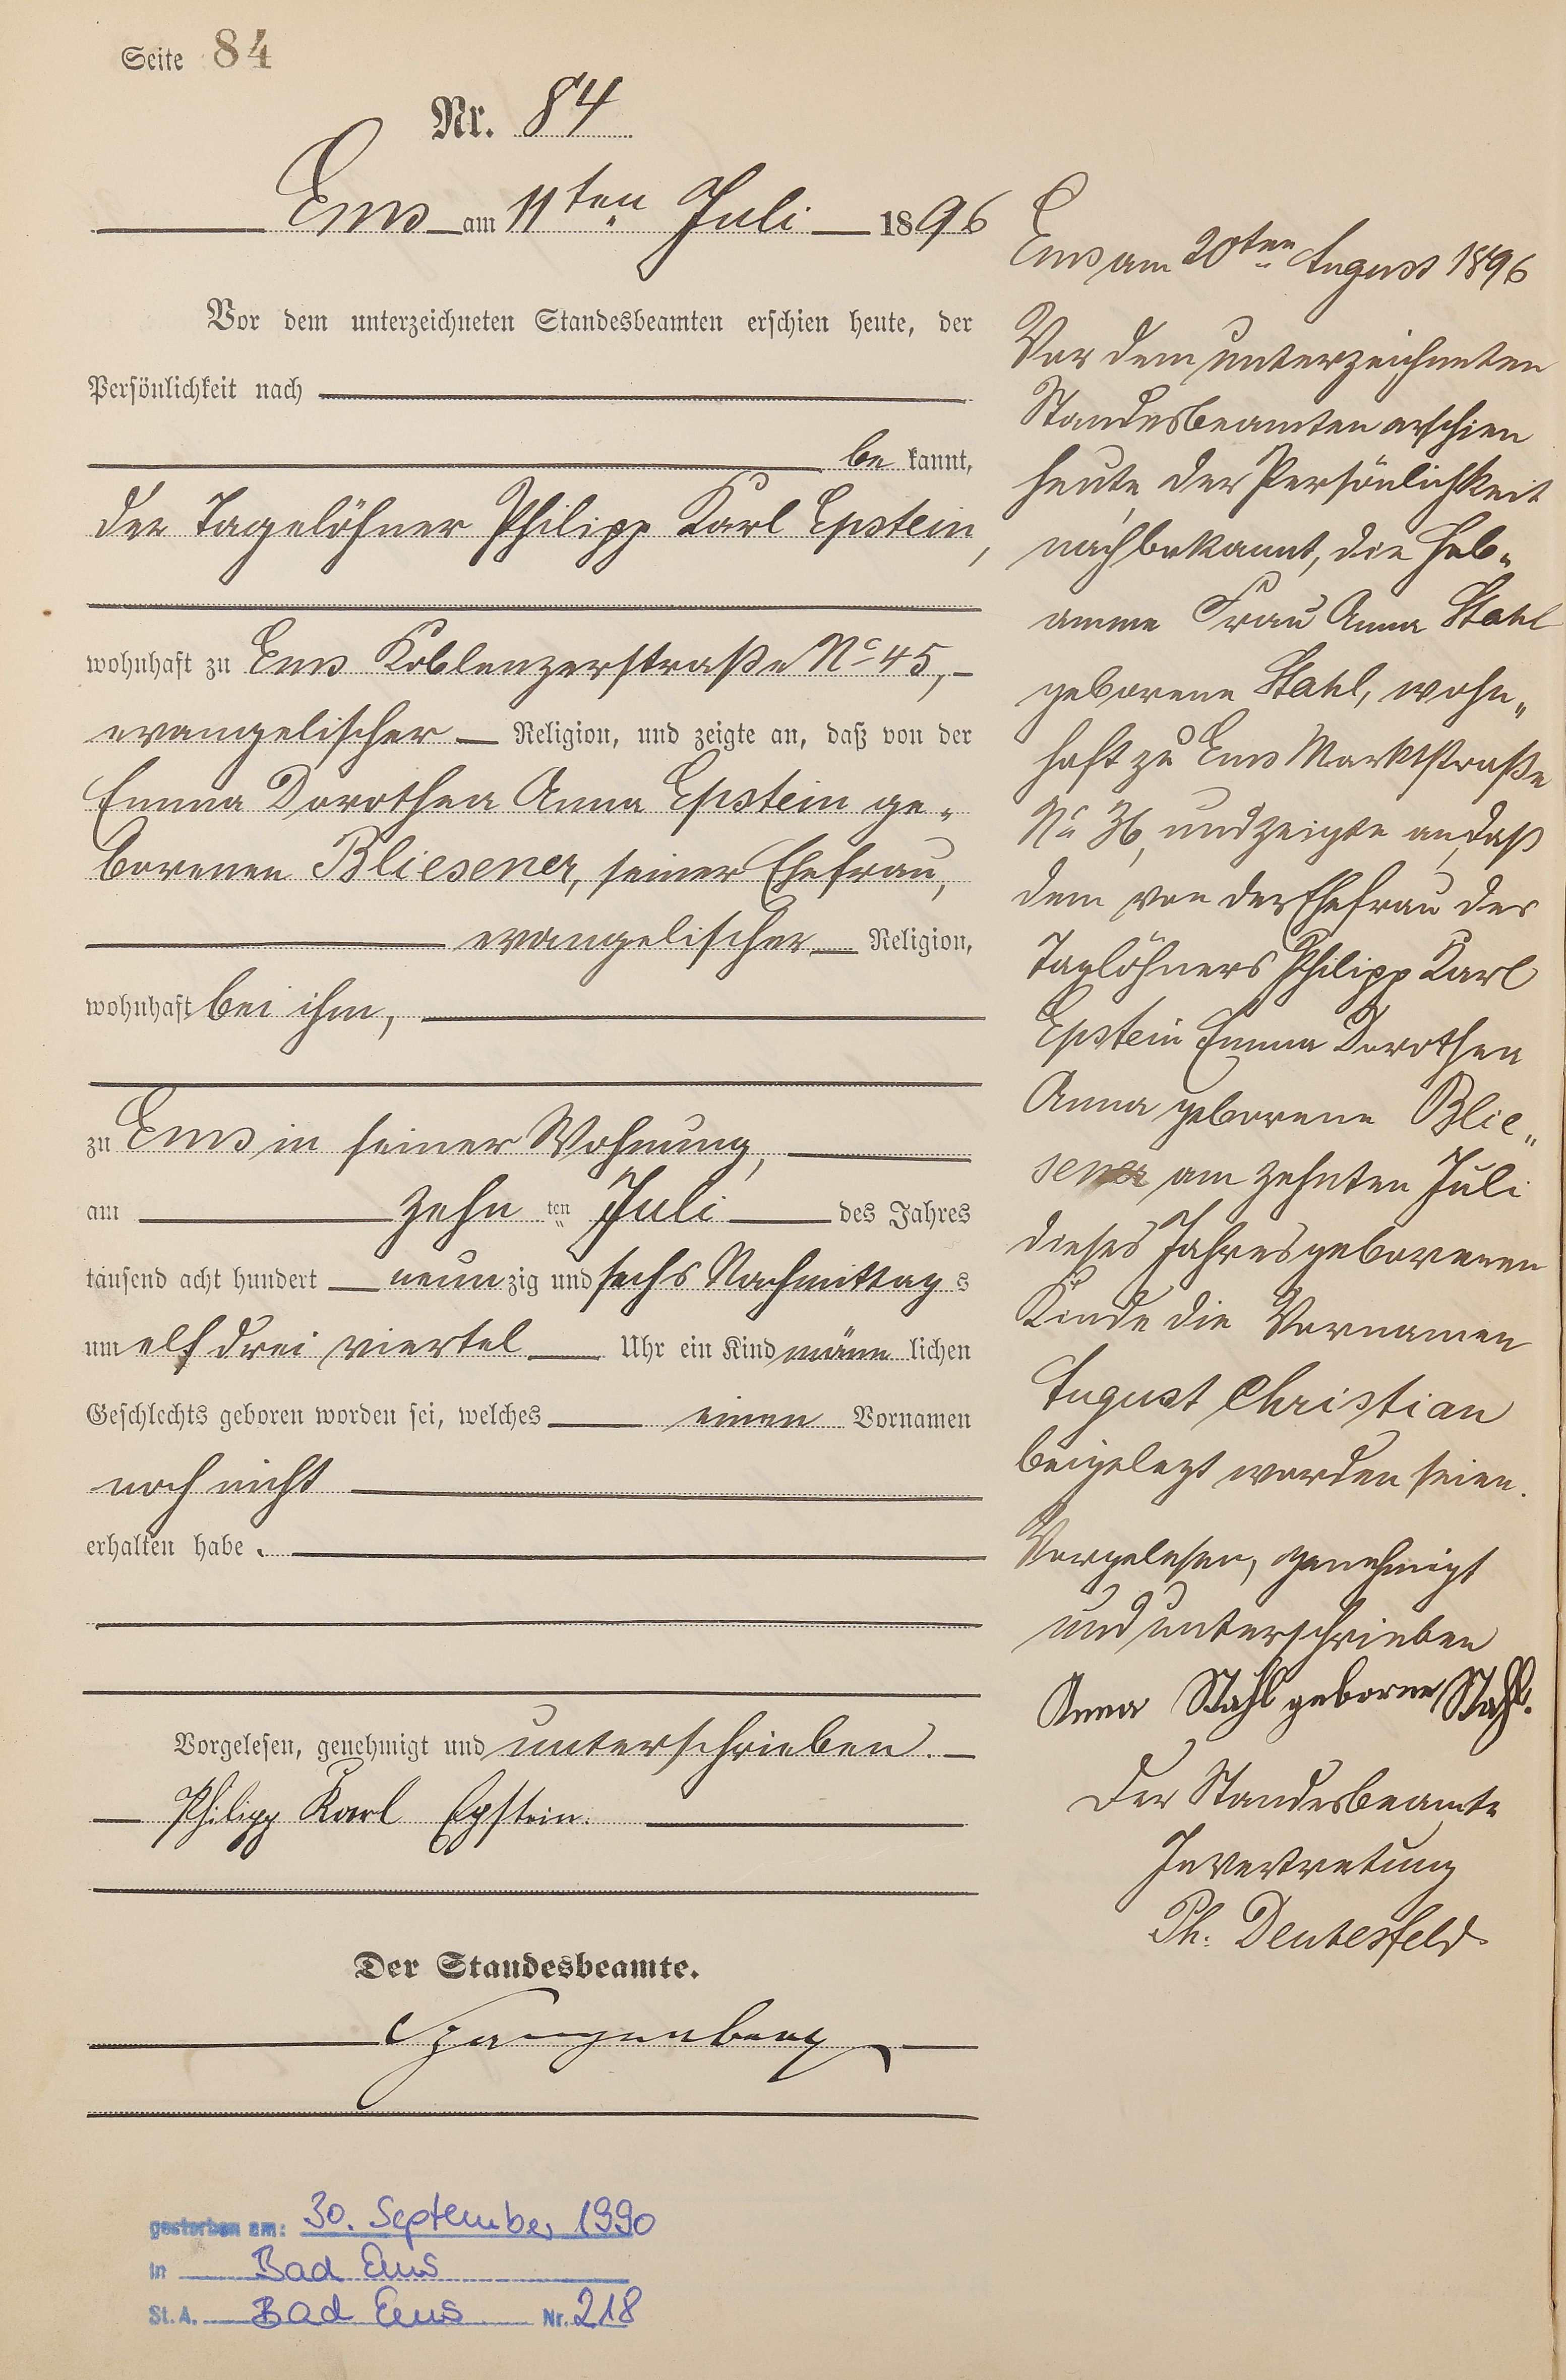 Seite 84
Nr. 84
Ems am 11ten Juli 1896
Vor dem unterzeichneten Standesbeamten erschien heute, der
Persönlichkeit nach
be kannt,
der Tagelöhner Philipp Karl Epstein,
wohnhaft zu Ems Koblenzerstraße No 45,
evangelischer Religion, und zeigte an, daß von der
Emma Dorothea Anna Epstein ge-
borenen Bliesener, seiner Ehefrau,
evangelischer Religion,
wohnhaft bei ihm,
zu Ems in seiner Wohnung,
am zehn ten Juli des Jahres
tausend acht hundert neun zig und sechs Nachmittag s
um elf drei viertel Uhr ein Kind männ lichen
Geschlechts geboren worden sei, welches einen Vornamen
noch nicht
erhalten habe.
Vorgelesen, genehmigt und unterschrieben.
Philipp Karl Epstein.
Der Standesbeamte.
gestorben am: 30. September 1990
in Bad Ems
St. A. Bad Ems Nr. 218
Ems am 20ten August 1896
Vor dem unterzeichneten
Standesbeamten erschien
heute, der Persönlichkeit
nach bekannt, die Heb-
amme Frau Anna Stahl
geborene Stahl, wohn-
haft zu Ems Marktstraße
No 36, und zeigte an, daß
dem von der Ehefrau des
Taglöhners Philipp Karl
Epstein Emma Dorothea
Anna geborene Blie-
sener am zehnten Juli
dieses Jahres geborenen
Kinde die Vornamen
August Christian
beigelegt worden seien.
Vorgelesen, genehmigt
und unterschrieben
Anna Stahl geborne Stahl.
Der Standesbeamte
In Vertretung
Ph. Deutesfeld